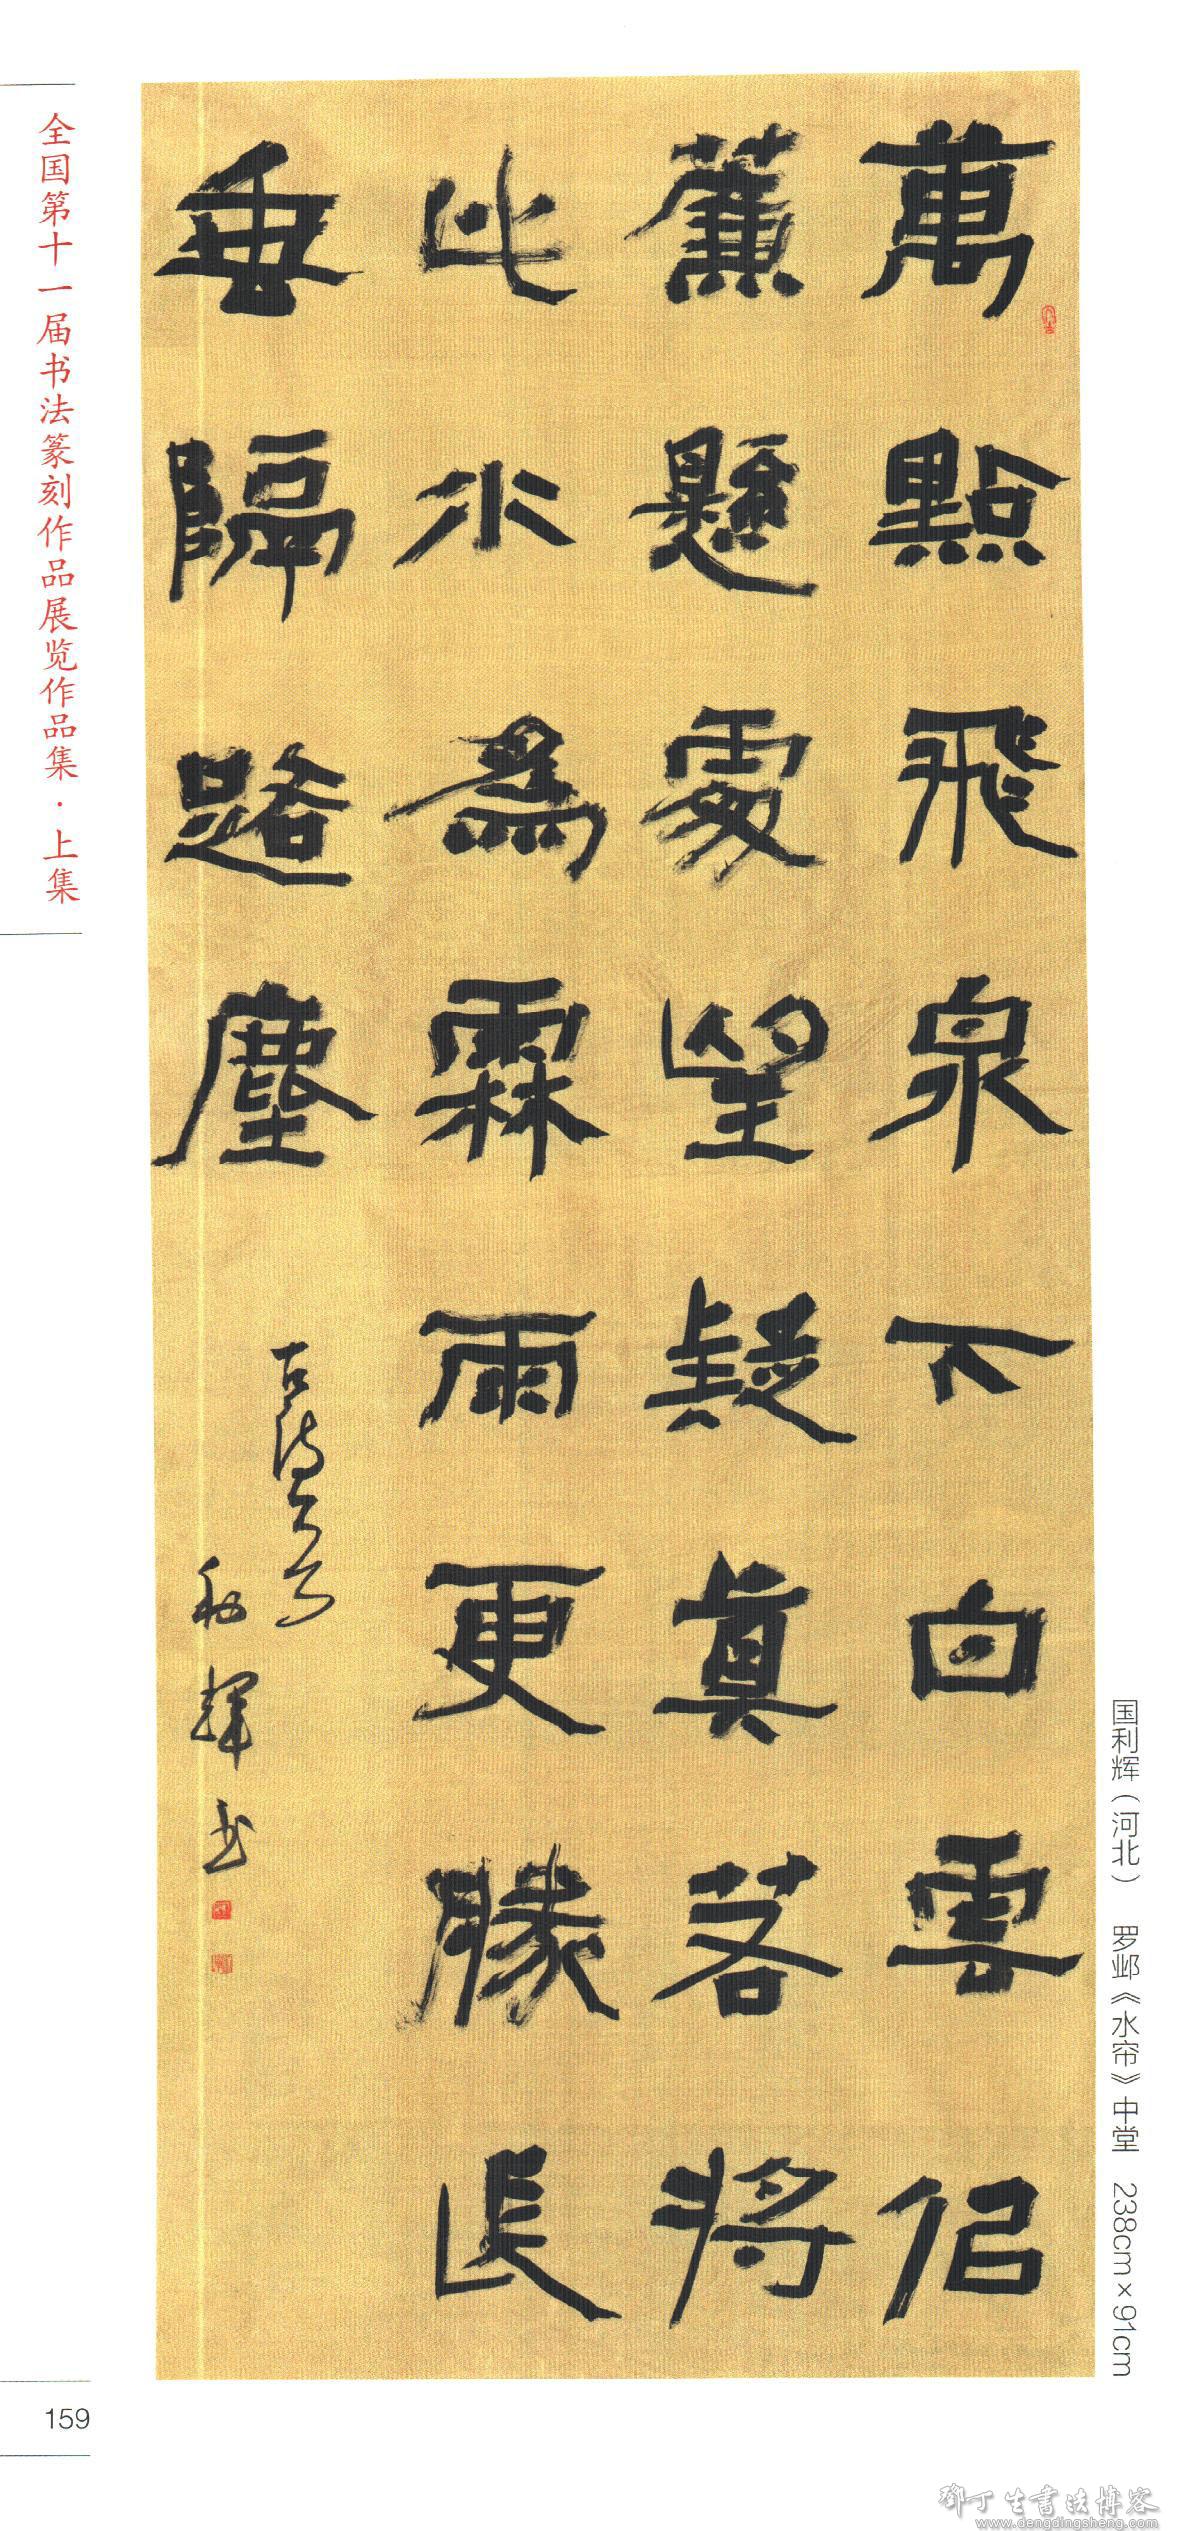 萬點飛泉下白雲佀
簾懸處望疑真若將
此水為霖雨更勝長
垂隔路塵
古詩一首
利輝书
全国第十一届书法篆刻作品展览作品集·上集
国利辉（河北） 罗邺《水帘》中堂 238cm×91cm
159
鄧丁生書法博客
www.dengdingsheng.com